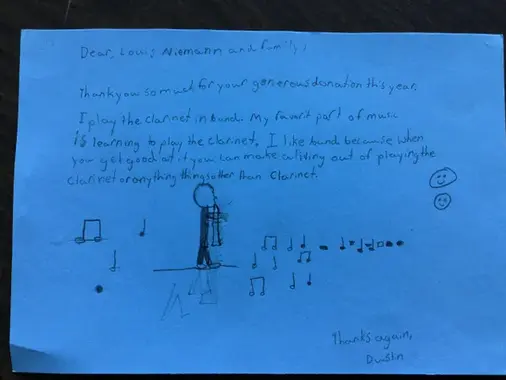 Dear, Louis Niemann and family,
Thankyou so much for your generous donation this year.
I play the clarinet in band. My favorit part of music
is learning to play the clarinet. I like band because when
you get good at it you can make a living out of playing the
clarinet or anything things other than Clarinet.
Thanks again,
Dustin